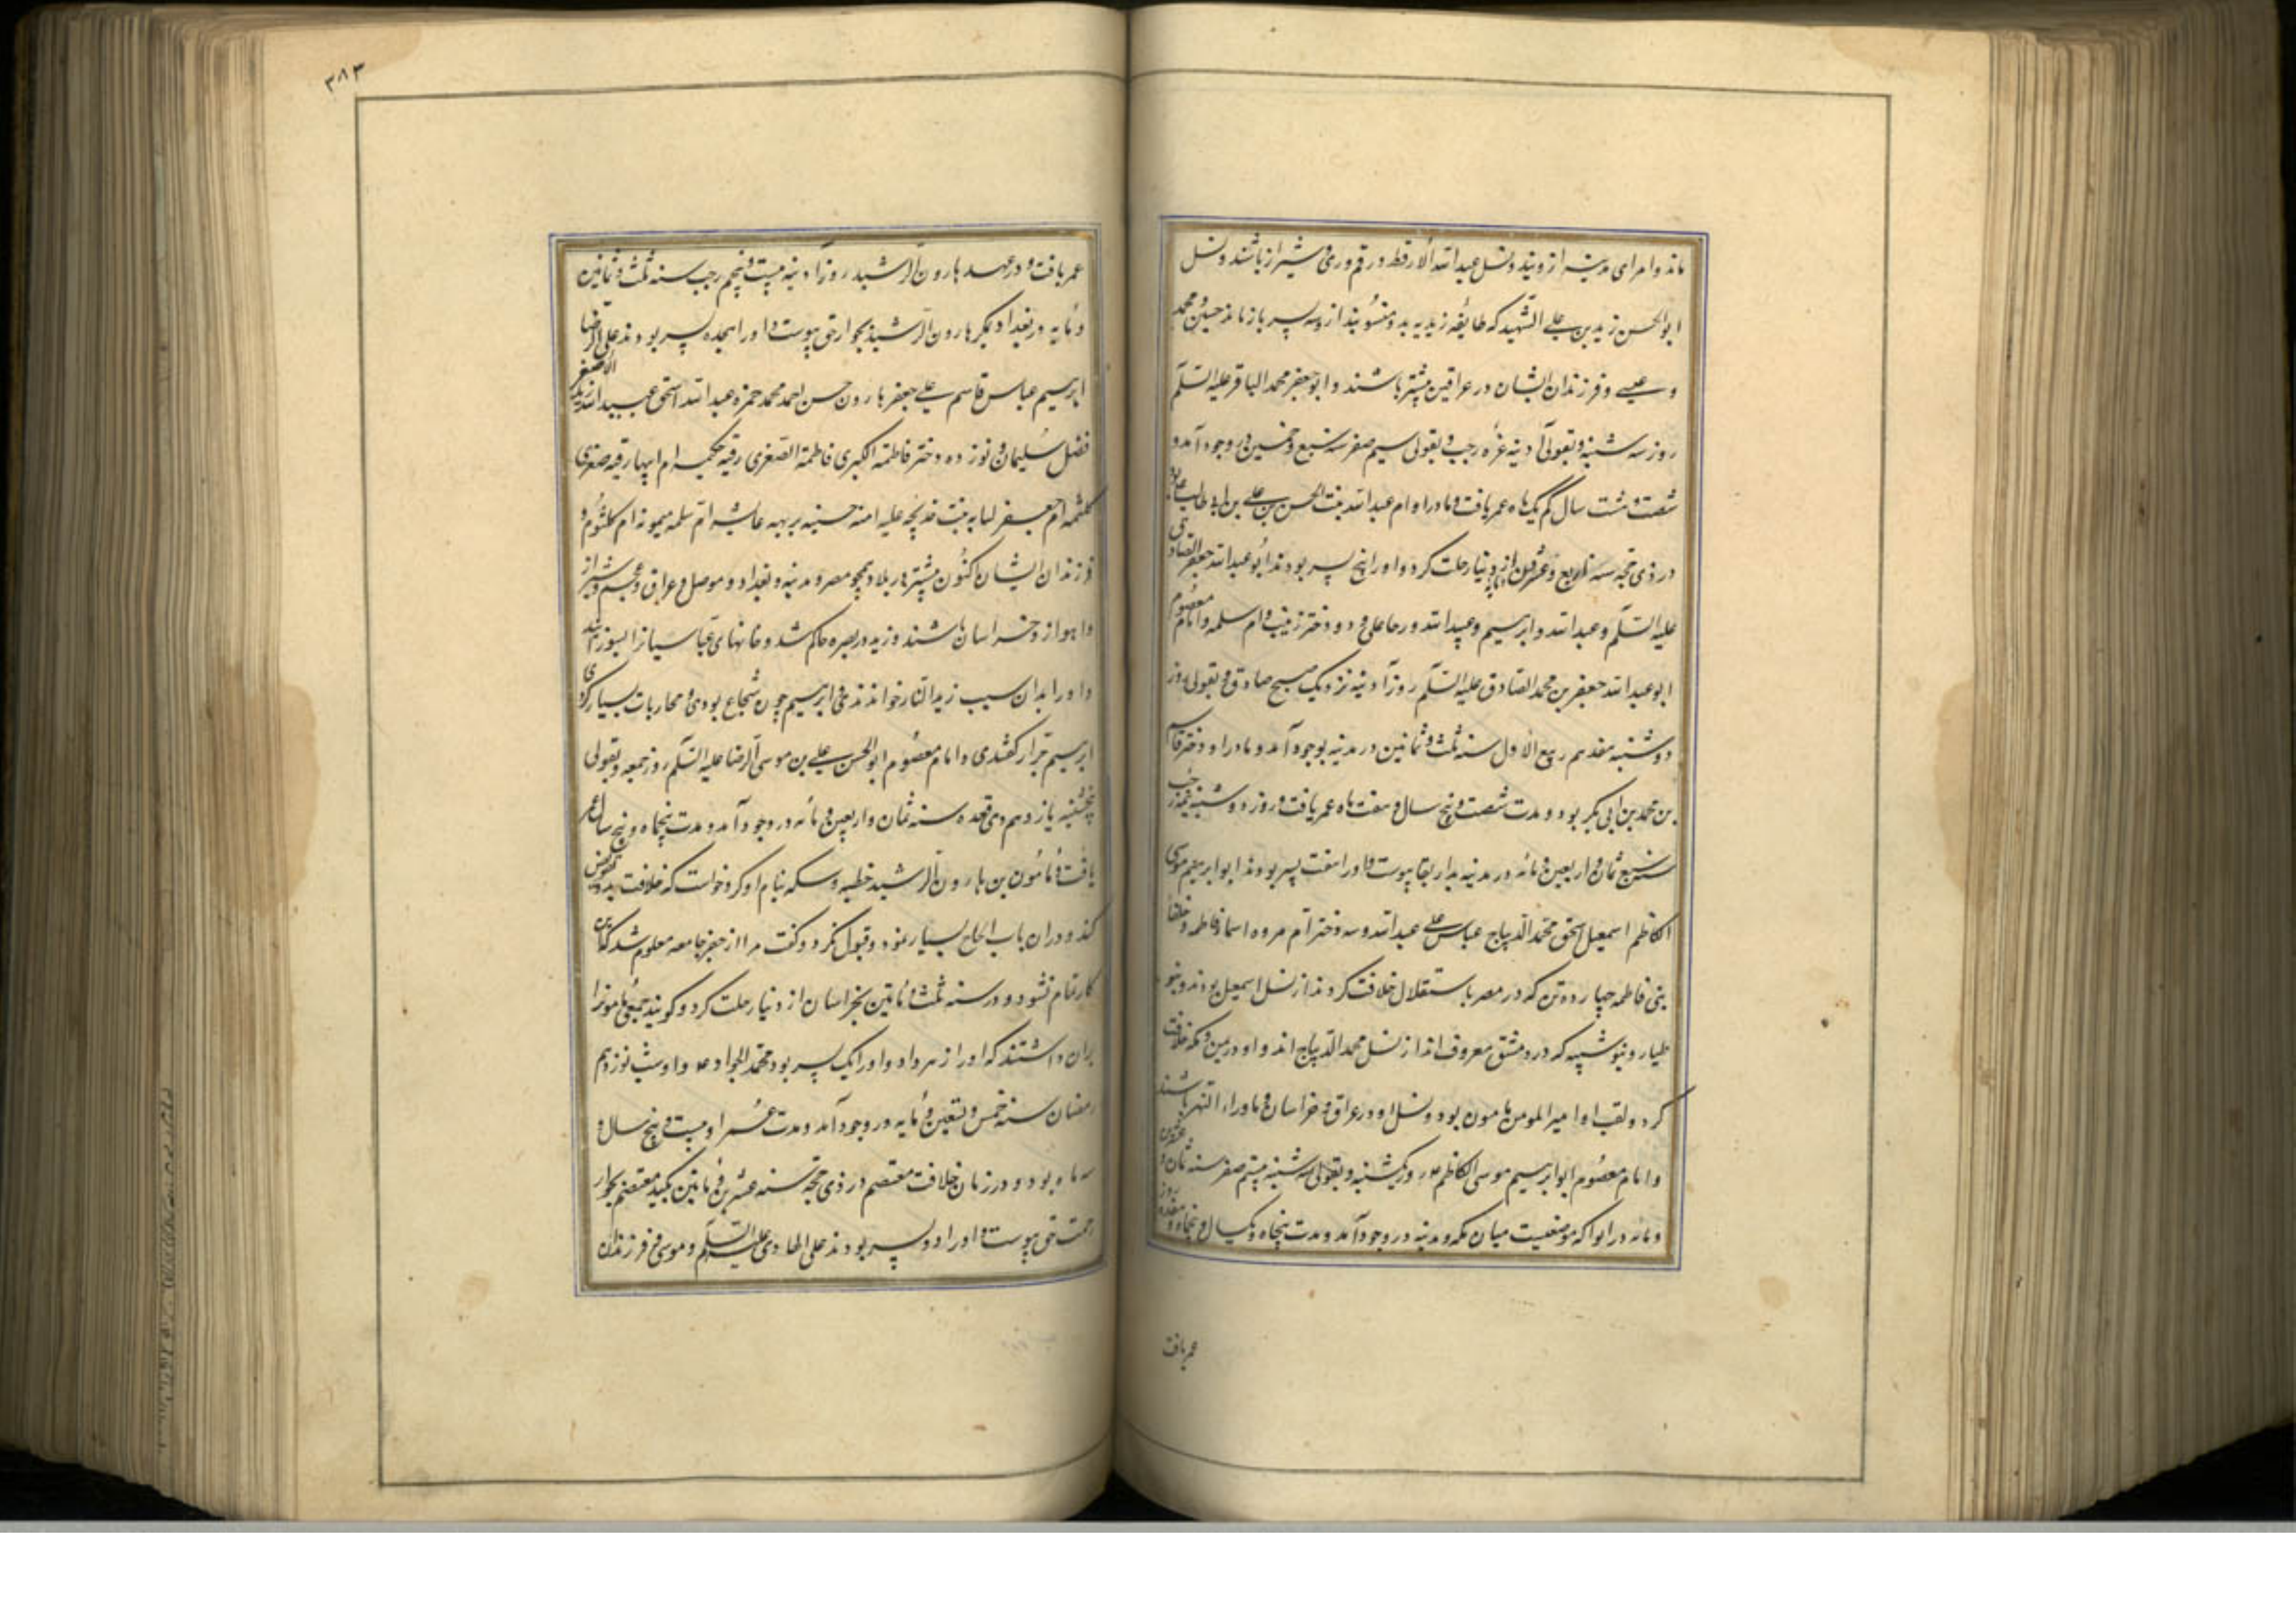 ماند و امرای مدینه از ویند و نسل عبدالله الارقط در قم و ری و شیراز باشند و نسل
ابوالحسن زید بن علی الشهید که طایفه زیدیه بدو منسوبند از و سه پسر باز ماند حسین و محمد
و عیسی و فرزندان ایشان در عراقین بیشتر باشند و ابوجعفر محمد الباقر علیه السلام
روز سه شنبه و بقولی آدینه غره رجب و بقولی سیم صفر سنه سبع و خمسین در وجود آمد و
شصت و شت سال کم یک ماه عمر یافت و مادر او ام عبدالله بنت الحسن بن علی بن ابی طالب
در ذی حجه سنه اربع و عشر از دنیا رحلت کرد و او را پنج پسر بودند ابو عبدالله جعفر الصادق
علیه السلام و عبدالله و ابراهیم و عبیدالله و رجا علی و دو دختر زینب و ام سلمه و امام معصوم
ابو عبدالله جعفر بن محمد الصادق علیه السلام روز آدینه نزدیک صبح صادق و بقولی روز
دوشنبه هفدهم ربیع الاول سنه ثلث و ثمانین در مدینه بوجود آمد و مادر او دختر قاسم
بن محمد بن ابی بکر بود و مدت شصت و پنج سال و هفت ماه عمر یافت و روز دوشنبه رجب
سنه ثمان و اربعین و مائه در مدینه بدار بقا پیوست و او را هفت پسر بودند ابو ابراهیم موسی
الکاظم اسمعیل اسحق محمد الدیباج عباس علی عبدالله و سه دختر ام فروه اسما فاطمه و خلفا
بنی فاطمه چهارده تن که در مصر باستقلال خلافت کردند از نسل اسمعیل بودند و بنو
طیار و بنو شبیه که در دمشق معروف اند از نسل محمد الدیباج اند و او در یمن و مکه خلافت
کرد و لقب او امیر المومنین مامون بود و نسل او در عراق و خراسان و ماوراء النهر باشند
و امام معصوم ابو ابراهیم موسی الکاظم روز یکشنبه و بقولی سه شنبه هفتم صفر سنه ثمان و عشرین
و مائه در ابوا که موضعیست میان مکه و مدینه در وجود آمد و مدت پنجاه و یکسال و پنجماه و هفده روز
عمر یافت
۳۸۳
عمر یافت و در عهد هارون الرشید روز آدینه بیست و پنجم رجب سنه ثلث و ثمانین
و مایه در بغداد بمکر هارون الرشید بجوار حق پیوست و او را هجده پسر بودند علی الرضا
ابراهیم عباس قاسم علی جعفر هارون حسن احمد محمد حمزه عبدالله اسحق عبیدالله زید الاصغر
فضل سلیمان و نوزده دختر فاطمة الکبری فاطمة الصغری رقیه حکیمه ام ابیها رقیه صغری
کلثمه ام جعفر لبابه زینب خدیجه علیه امنه حسنیه بریهه عایشه ام سلمه میمونه ام کلثوم و
فرزندان ایشان کنون بیشتر در بلاد همچو مصر و مدینه و بغداد و موصل و عراق عجم و شیراز
و اهواز و خراسان باشند و زید در بصره حاکم شد و خانهای عباسیانرا بسوزانید
و او را بدان سبب زید النار خواندندی و ابراهیم چون شجاع بودی و محاربات بسیار کردی
ابراهیم جزار گفتندی و امام معصوم ابوالحسن علی بن موسی الرضا علیه السلام روز جمعه و بقولی
پنجشنبه یازدهم ذی قعده سنه ثمان و اربعین و مائه در وجود آمد و مدت پنجاه و پنج سال عمر
یافت و مأمون بن هارون الرشید خطبه و سکه بنام او کرد و خواست که خلافت بدو تفویض
کند و در ان باب الحاح بسیار نمود و قبول نکرد و گفت مرا از جفر جامعه معلوم شد که این
کار تمام نشود و در سنه ثلث و مأتین بخراسان از دنیا رحلت کرد و گویند جمعی مامونرا
بران داشتند که او را زهر داد و او را یک پسر بود محمد الجواد و او شب نوزدهم
رمضان سنه خمس و تسعین و مایه در وجود آمد و مدت عمر او بیست و پنج سال و
سه ماه بود و در زمان خلافت معتصم در ذی حجه سنه عشرین و مأتین بکید معتصم بجوار
رحمت حق پیوست و او را دو پسر بودند علی الهادی علیه السلام و موسی و فرزندان